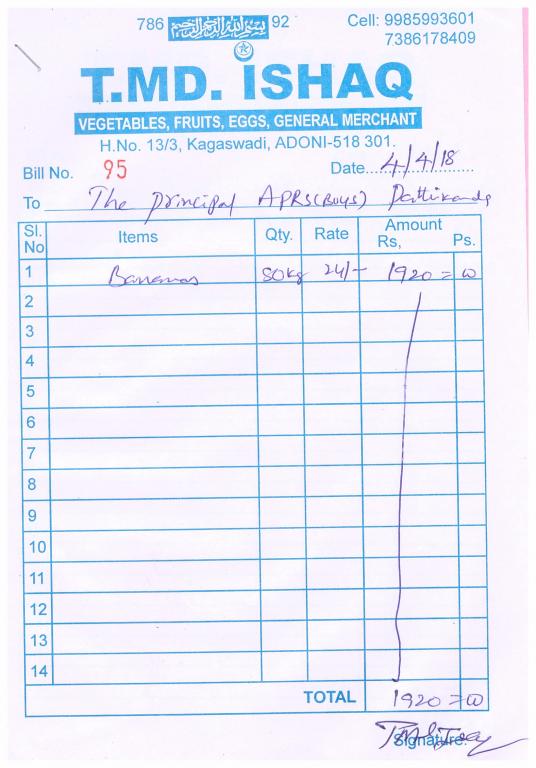 786 بسم الله الرحمن الرحيم 92
Cell: 9985993601
7386178409
T.MD. ISHAQ
VEGETABLES, FRUITS, EGGS, GENERAL MERCHANT
H.No. 13/3, Kagaswadi, ADONI-518 301.
Bill No. 95 Date 4/4/18
To The Principal APRS(Boys) Pattikonda
Sl. No Items Qty. Rate Amount Rs, Ps.
1 Bananas 80kg 24/- 1920=00
2
3
4
5
6
7
8
9
10
11
12
13
14
TOTAL 1920=00
Signature.